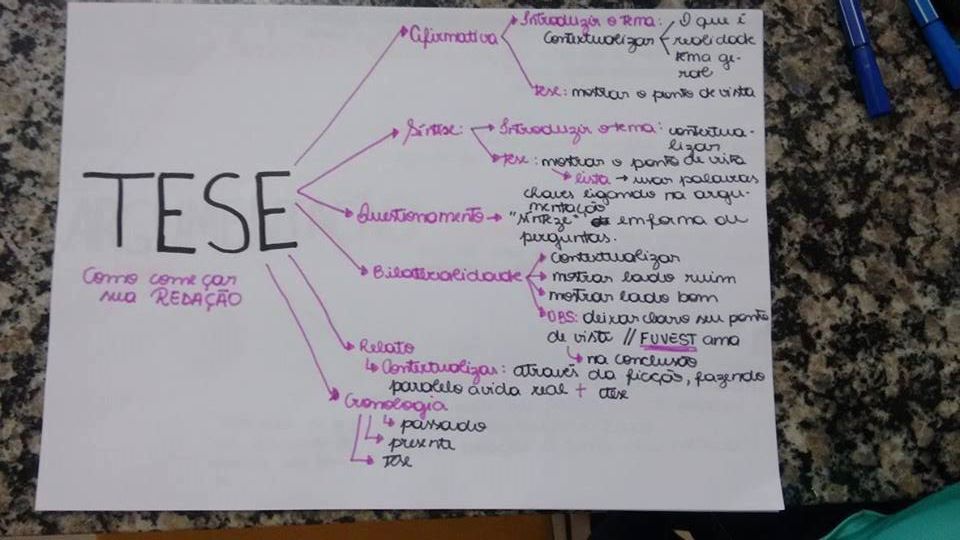 TESE
Como começar
sua REDAÇÃO
Afirmativa
Introduzir o tema: O que é
Contextualizar realidade
tema ge-
ral
tese: mostrar o ponto de vista
Síntese:
Introduzir o tema: contextua-
lizar
tese: mostrar o ponto de vista
lista → usar palavras
chaves ligando na argu-
mentação
Questionamento → "sínteze" em forma de
perguntas.
Bilateralidade
contextualizar
mostrar lado ruim
mostrar lado bom
OBS: deixar claro seu ponto
de vista // FUVEST ama
na conclusão
Relato
Contextualizar: através da ficção, fazendo
paralelo à vida real + tese
Cronologia
passado
presente
tese